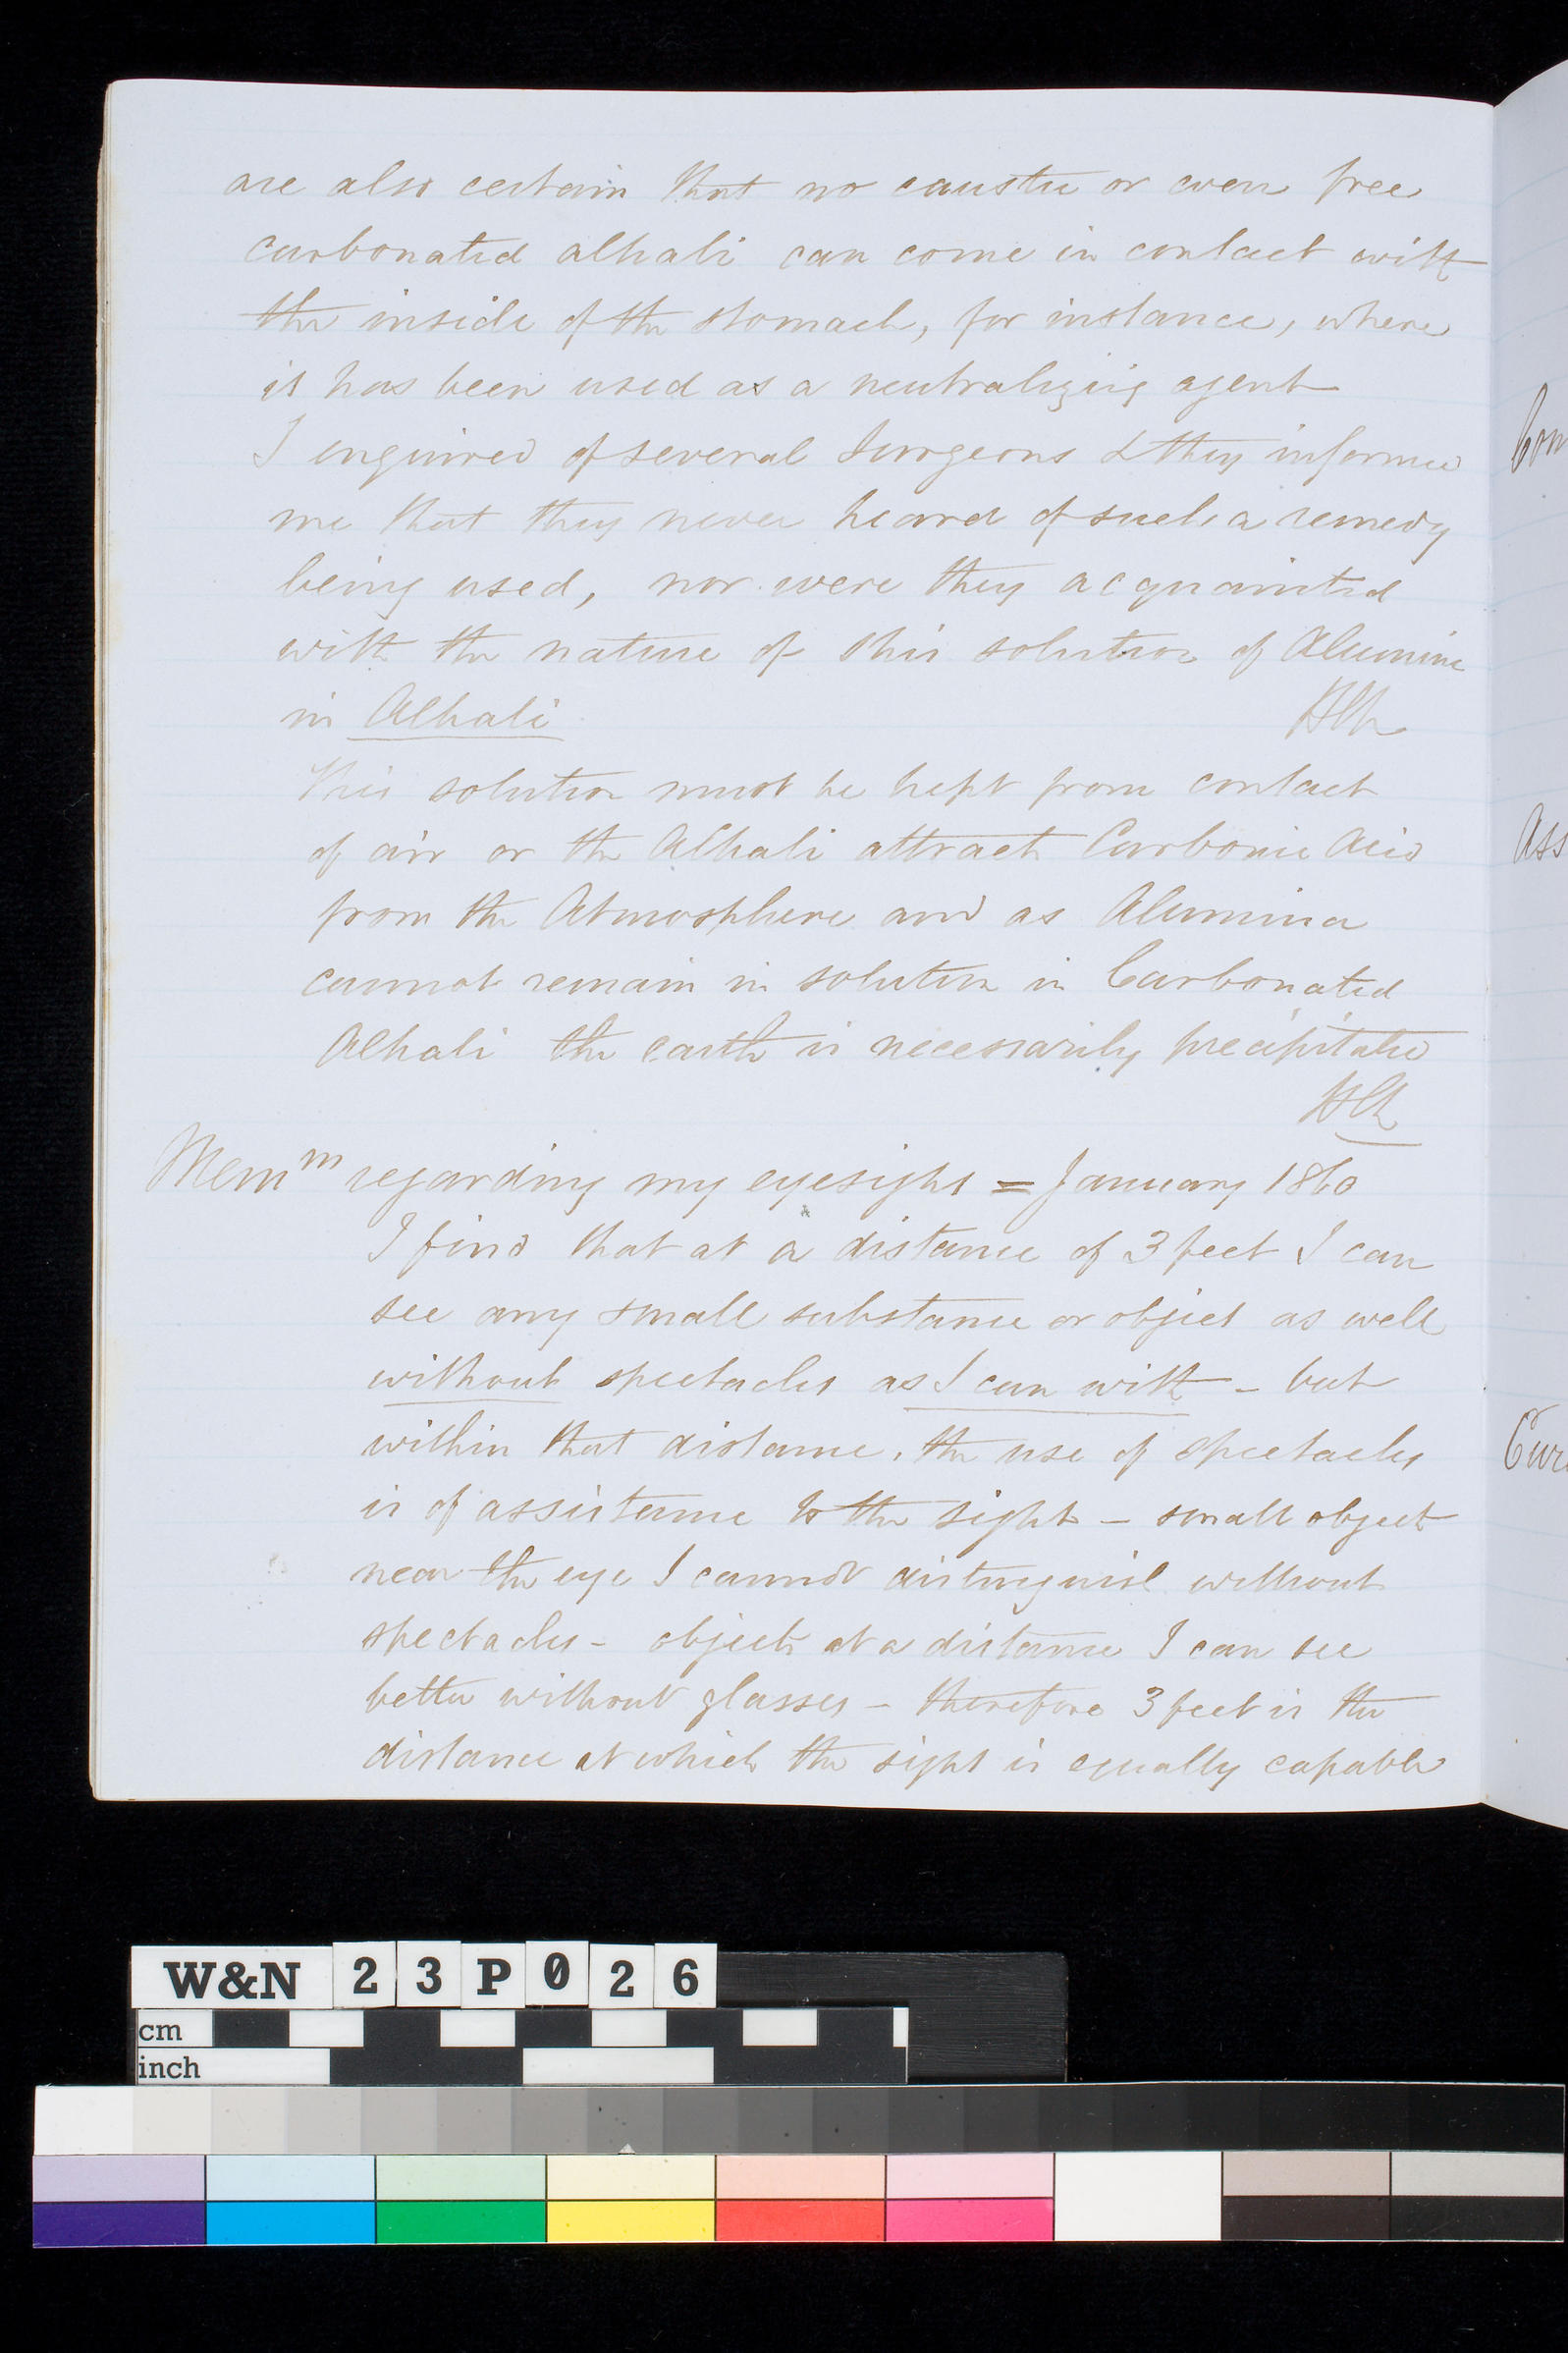 are also certain that no caustic or even free
carbonated alkali can come in contact with
the inside of the stomach, for instance, where
it has been used as a neutralizing agent
I enquired of several Surgeons & they informed
me that they never heard of such a remedy
being used, nor were they acquainted
with the nature of this solution of Alumine
in Alkali
This solution must be kept from contact
of air or the Alkali attracts Carbonic Acid
from the Atmosphere and as Alumina
cannot remain in solution in Carbonated
Alkali the earth is necessarily precipitated
Mem^m regarding my eyesight = January 1860
I find that at a distance of 3 feet I can
see any small substance or object as well
without spectacles as I can with - but
within that distance, the use of spectacles
is of assistance to the sight - small objects
near the eye I cannot distinguish without
spectacles - objects at a distance I can see
better without glasses - therefore 3 feet is the
distance at which the sight is equally capable
Con
Ass
Cur
W&N 23P026
cm
inch